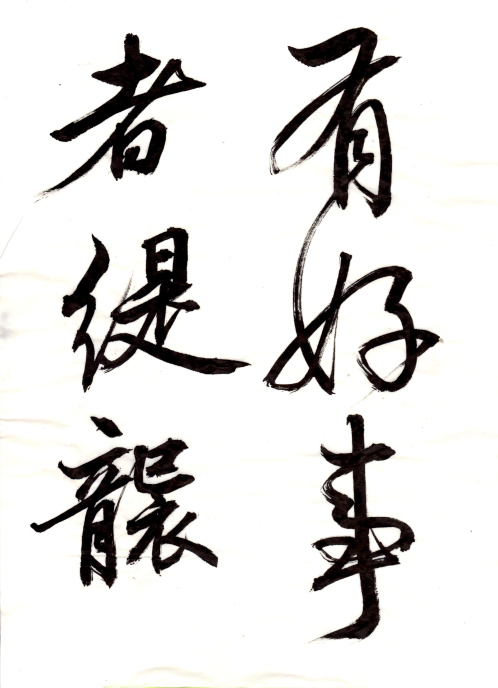 有好事
者缇襲